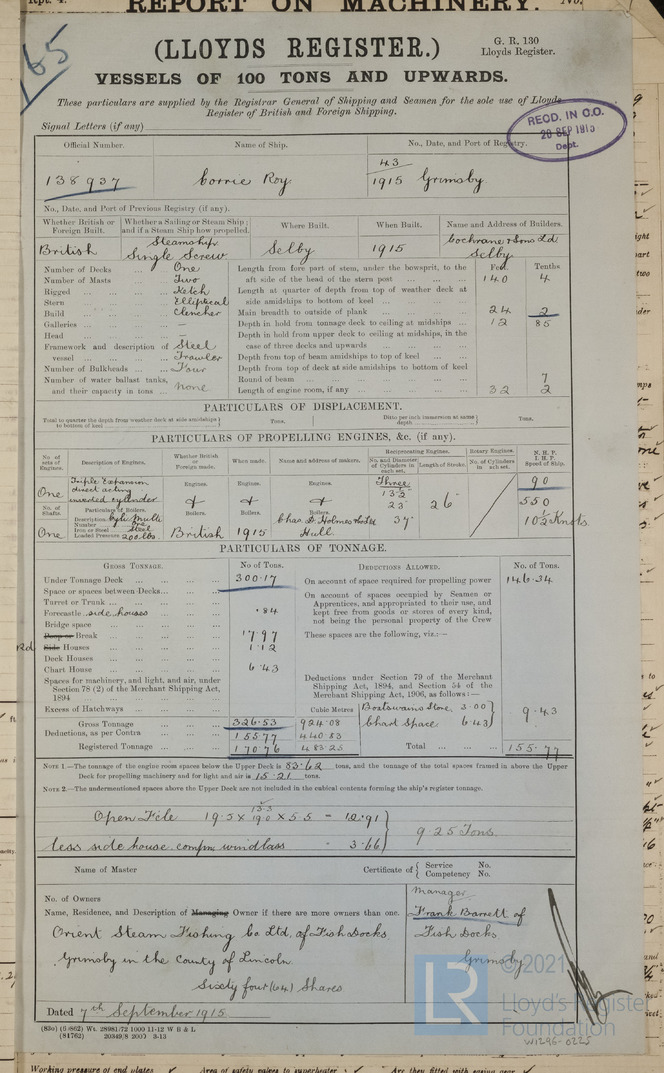 Rpt. 4.
REPORT ON MACHINERY.
No.
165
(LLOYDS REGISTER.)
G. R. 130
Lloyds Register.
VESSELS OF 100 TONS AND UPWARDS.
These particulars are supplied by the Registrar General of Shipping and Seamen for the sole use of Lloyds
Register of British and Foreign Shipping.
RECD. IN C.O.
20 SEP 1915
Dept.
Signal Letters (if any)
Official Number. Name of Ship. No., Date, and Port of Registry.
43
138937 Corrie Roy 1915 Grimsby
No., Date, and Port of Previous Registry (if any).
Whether British or Foreign Built. Whether a Sailing or Steam Ship; and if a Steam Ship how propelled. Where Built. When Built. Name and Address of Builders.
British Steamship Single Screw Selby 1915 Cochrane & Sons Ld Selby
Feet. Tenths
Number of Decks ... One Length from fore part of stem, under the bowsprit, to the
Number of Masts ... Two aft side of the head of the stern post ... 140 4
Rigged ... Ketch Length at quarter of depth from top of weather deck at
Stern ... Elliptical side amidships to bottom of keel ...
Build ... Clencher Main breadth to outside of plank ... 24 2
Galleries ... — Depth in hold from tonnage deck to ceiling at midships ... 12 85
Head ... — Depth in hold from upper deck to ceiling at midships, in the
Framework and description of Steel case of three decks and upwards ...
vessel ... Trawler Depth from top of beam amidships to top of keel ...
Number of Bulkheads ... Four Depth from top of deck at side amidships to bottom of keel
Number of water ballast tanks, Round of beam ... 7
and their capacity in tons ... None Length of engine room, if any ... 32 2
PARTICULARS OF DISPLACEMENT.
Total to quarter the depth from weather deck at side amidships to bottom of keel Tons. Ditto per inch immersion at same depth Tons.
PARTICULARS OF PROPELLING ENGINES, &c. (if any).
No. of sets of Engines. Description of Engines. Whether British or Foreign made. When made. Name and address of makers. Reciprocating Engines. Rotary Engines. N. H. P.
No. and Diameter of Cylinders in each set. Length of Stroke. No. of Cylinders in each set. I. H. P. Speed of Ship.
One Triple Expansion direct acting inverted cylinder Engines. Engines. Engines. Three 90
13½
23 26 550
37 10½ Knots
No. of Shafts. Particulars of Boilers. Boilers. Boilers. Boilers.
Description
Number One
Iron or Steel Steel
Loaded Pressure 200 lbs.
One British 1915 Chas. D. Holmes & Co Ld Hull
PARTICULARS OF TONNAGE.
GROSS TONNAGE. No of Tons. DEDUCTIONS ALLOWED. No. of Tons.
Under Tonnage Deck ... 300.17 On account of space required for propelling power 146.34
Space or spaces between Decks... On account of spaces occupied by Seamen or
Turret or Trunk ... Apprentices, and appropriated to their use, and
Forecastle side houses .84 kept free from goods or stores of every kind,
Bridge space ... not being the personal property of the Crew
Poop or Break ... 17.97 These spaces are the following, viz.:—
Rd Side Houses ... 1.12
Deck Houses ...
Chart House ... 6.43
Spaces for machinery, and light, and air, under
Section 78 (2) of the Merchant Shipping Act,
1894 ...
Deductions under Section 79 of the Merchant
Shipping Act, 1894, and Section 54 of the
Merchant Shipping Act, 1906, as follows:—
Excess of Hatchways ... Cubic Metres Boatswains Store 3.00
Gross Tonnage 326.53 924.08 Chart Space 6.43 9.43
Deductions, as per Contra 155.77 440.83
Registered Tonnage ... 170.76 483.25 Total ... 155.77
NOTE 1.—The tonnage of the engine room spaces below the Upper Deck is 53.62 tons, and the tonnage of the total spaces framed in above the Upper
Deck for propelling machinery and for light and air is 15.21 tons.
NOTE 2.—The undermentioned spaces above the Upper Deck are not included in the cubical contents forming the ship's register tonnage.
13.3
19.5 x 19.0 x 5.5 = 12.91
less side house, compn, windlass - 3.66
9.25 Tons.
Name of Master Certificate of Service No.
Competency No.
No. of Owners Manager
Name, Residence, and Description of Managing Owner if there are more owners than one. Frank Barrett of
Orient Steam Fishing Co. Ltd, of Fish Docks, Fish Docks
Grimsby in the County of Lincoln. Grimsby
Sixty four (64) Shares
Dated 7th September 1915.
(83o) (5/862) Wt. 28981/72 1000 11-12 W B & L
(84762) 20349/8 2000 3-13
LR
© 2021
Lloyd's Register
Foundation
W1296-0225
Working pressure of end plates Area of safety valves to superheater Are they fitted with easing gear